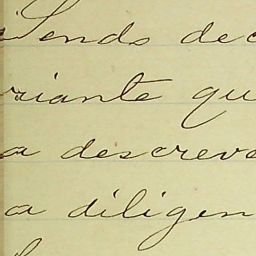 Sendo dec
riante qu
a descreve
a diligen